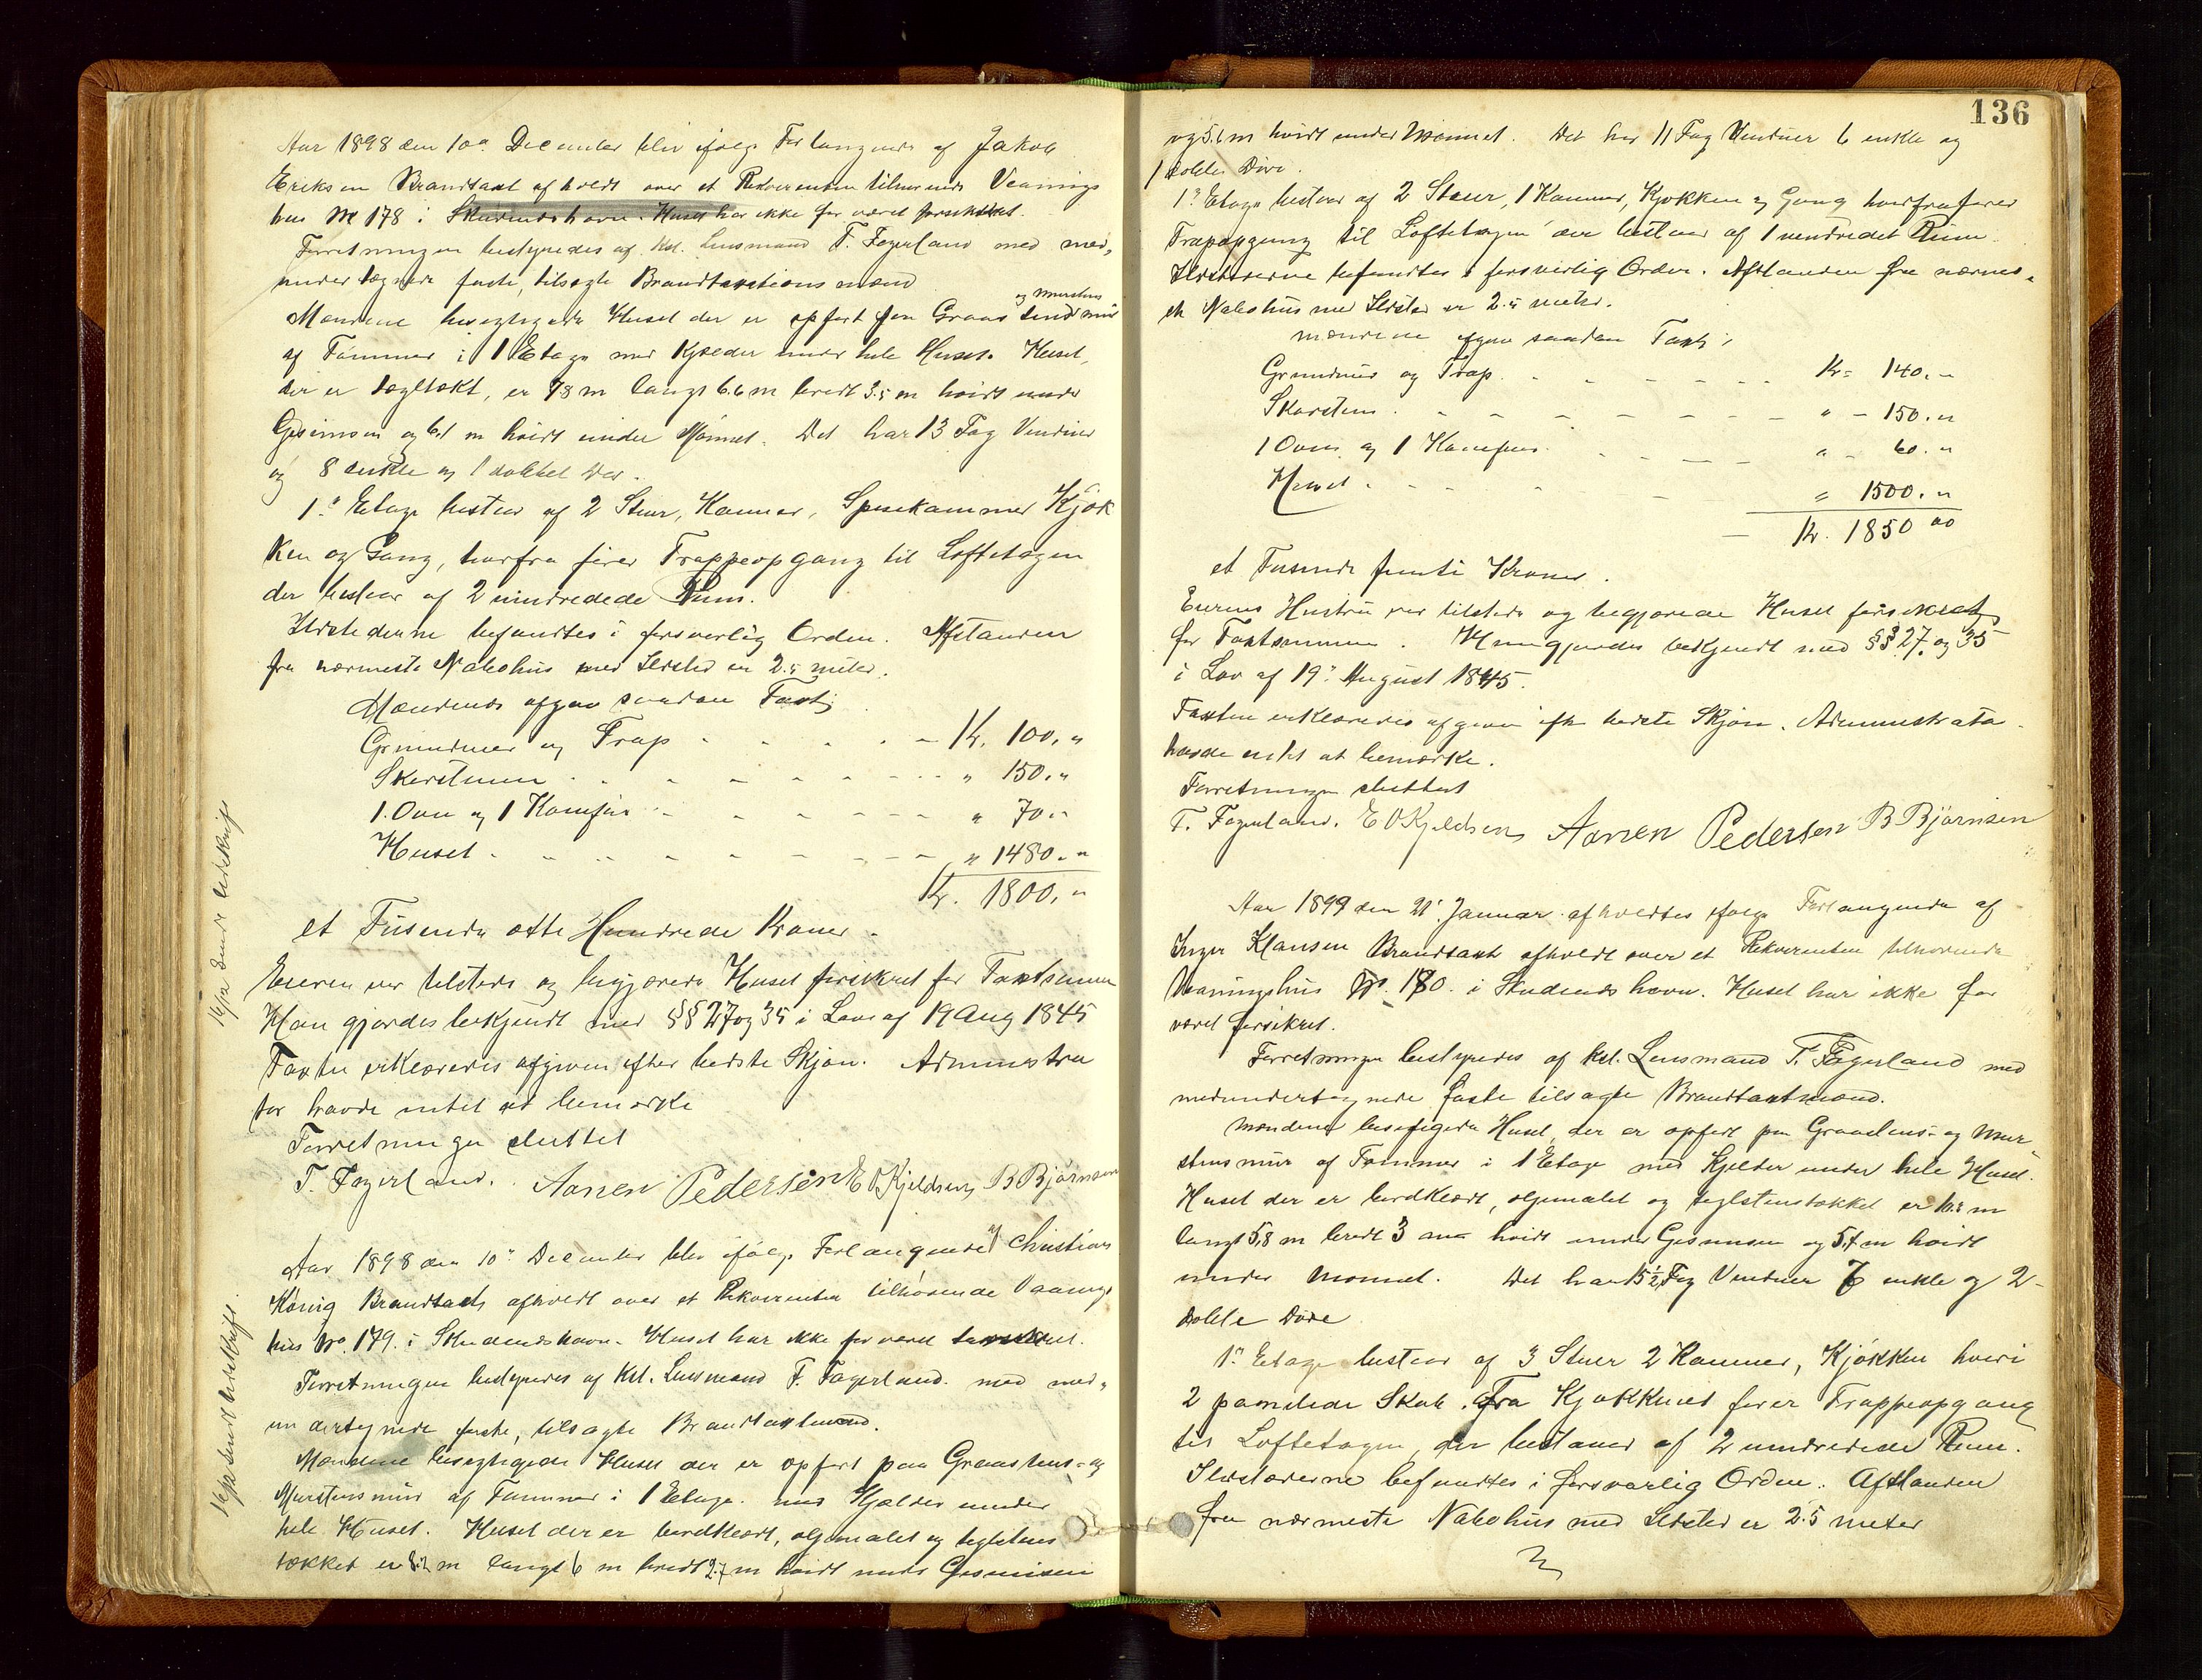 Aar 1898 den 10de December blev ifølge Forlangende af Jakob
Eriksen Brandtaxt afholdt over et Rekvirenten tilhørende Vaanings
hus No 178 i Skudeneshavn. Huset har ikke før været forsikret.
Forretningen bestyredes af Kst. Lensmand T. Fagerland med med-
undertegnede faste, tilsagte Brandtaxtionsmænd
Mændene besigtigede Huset der er opført paa Graa stens mur
og Murstens
af Tømmer i 1 Etage med Kjælder under hele Huset. Huset,
der er tægtækt, er 7.8 m langt 6.6 m bredt 3.5 m høidt under
Gesimsen og 6.1 m høidt under Mønnet. Det har 13 Fag Vinduer
og 8 enkle og 1 dobbel Dør.
1ste Etage bestaar af 2 Stuer, Kammer, Spisekammer Kjøk
ken og Gang, hvorfra fører Trappeopgang til Loftetagen
der bestaar af 2 uindredede Rum.
Ildstederne befandtes i forsvarlig Orden. Afstanden
fra nærmeste Nabohus med Ildsted er 2.5 meter.
Mændende afgav saadan Taxt;
Grundmur og Trap - - - - Kr. 100. "
Skorstenen - - - - - - " 150. "
1 Ovn og 1 Komfur - - - - - " 70. "
Huset - - - - - - " 1480. "
Kr. 1800. "
et Tusende otte Hundrede Kroner.
Eieren var tilstede og begjærede Huset forsikret for Taxtsummen
Han gjordes bekjendt med §§ 27 og 35 i Lov af 19 Aug 1845
Taxten erklæredes afgiven efter bedste Skjøn. Administra
tor havde intet at bemærke
Forretningen sluttet
T. Fagerland. Aanen Pedersen E O Kjeldsen B Bjørnsen
16/12 sendt Udskrift
Aar 1898 den 10de December blev ifølge Forlangende af Christian
König Brandtaxt afholdt over et Rekvirenten tilhørende Vaanings
hus No. 179. i Skudeneshavn. Huset har ikke før været forsikret.
Forretningen bestyredes af Kst. Lensmand T. Fagerland med med-
undertegnede faste, tilsagte Brandtaxtmænd.
Mændene besigtigede Huset der er opført paa Graastens- og
Murstensmur af Tømmer i 1 Etage med Kjælder under
hele Huset. Huset der er bordklædt, oljemalet og teglstens
tækket er 8.2 m langt 6 m bredt 2.7 m høidt under Gesimsen
16/12 sendt Udskrift.
136
og 5.6 m høidt under Mønnet. Det har 11 Fag Vinduer 6 enkle og
1 dobble Døre.
1ste Etage bestaar af 2 Stuer, 1 Kammer, Kjøkken og Gang hvorfra fører
Trapopgang til Loftetagen der bestaar af 1 uindredet Rum.
Ildstederne befandtes i forsvarlig Orden. Afstanden fra nærmes-
te Nabohus med Ildsted er 2.5 meter.
Mændene afgav saadan Taxt;
Grundmur og Trap. - - - - - Kr. 140. "
Skorsten. - - - - - - - " - 150. "
1 Ovn og 1 Komfur. - - - - " - 60. "
Huset. - - - - " 1500. "
Kr. 1850 00
et Tusende femti Kroner.
Eierens Hustru var tilstede og begjærede Huset forsikret
for Taxtsummen. Hun gjordes bekjendt med §§ 27 og 35
i Lov af 19de August 1845.
Taxten erklæredes afgiven efter bedste Skjøn. Administrator
havde intet at bemærke.
Forretningen sluttet
T. Fagerland. E O Kjeldsen Aanen Pedersen B Bjørnsen
Aar 1899 den 21de Januar afholdtes ifølge Forlangende af
Inger Klausen Brandtaxt afholdt over et Rekvirenten tilhørende
Vaaningshus No. 180. i Skudeneshavn. Huset har ikke før
været forsikret.
Forretningen bestyredes af Kst. Lensmand T. Fagerland med
medundertegnede faste tilsagte Brandtaxtmænd.
Mændene besigtigede Huset, der er opført paa Graastens- og Mur-
stensmur af Tømmer i 1 Etage med Kjelder under hele Huset.
Huset der er bordklædt, oljemalet og teglstenstækket er m
langt 5.8 m bredt 3 m høidt under Gesimsen og 5.7 m høidt
under Mønnet. Det har 15 1/2 Fag Vinduer 7 enkle og 2
dobble Døre
1ste Etage bestaar af 3 Stuer 2 Kammer, Kjøkken hvori
2 panelede Skab. Fra Kjøkkenet fører Trappeopgang
til Loftetagen, der bestaar af 2 uindredede Rum.
Ildstederne befandtes i forsvarlig Orden. Afstanden
fra nærmeste Nabohus med Ildsted er 2.5 meter